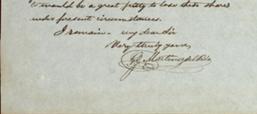 would be a great pity to lose their shares
under present circumstances.
I remain - my dear Sir
Very truly yours,